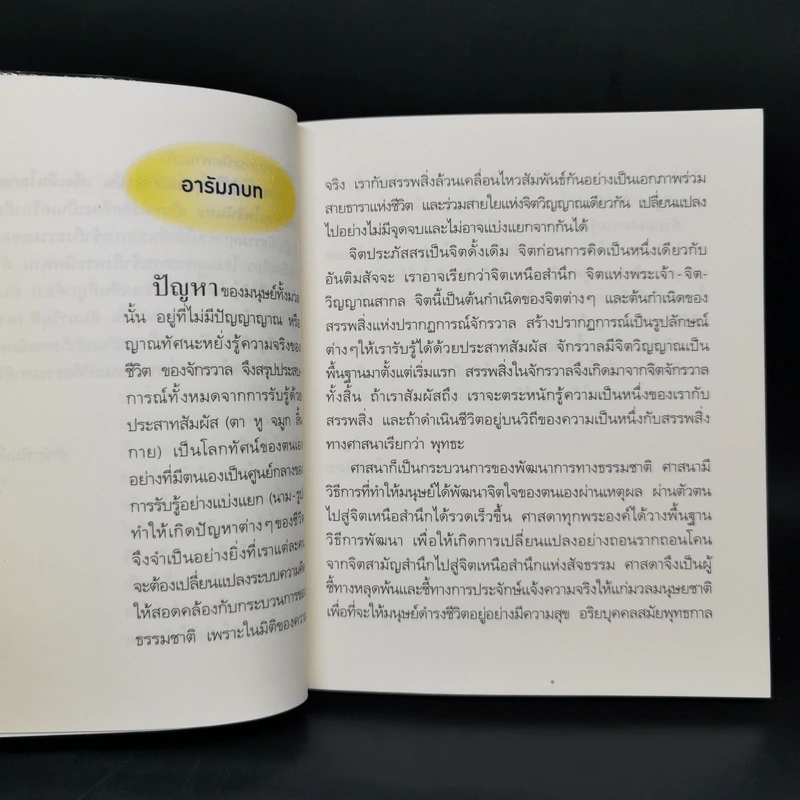 อารัมภบท
ปัญหาของมนุษย์ทั้งมวล
นั้น อยู่ที่ไม่มีปัญญาญาณ หรือ
ญาณทัศนะหยั่งรู้ความจริงของ
ชีวิต ของจักรวาล จึงสรุปประสบ-
การณ์ทั้งหมดจากการรับรู้ด้วย
ประสาทสัมผัส (ตา หู จมูก ลิ้น
กาย) เป็นโลกทัศน์ของตนเอง
อย่างที่มีตนเองเป็นศูนย์กลางของ
การรับรู้อย่างแบ่งแยก (นาม-รูป)
ทำให้เกิดปัญหาต่างๆของชีวิต
จึงจำเป็นอย่างยิ่งที่เราแต่ละคน
จะต้องเปลี่ยนแปลงระบบความคิด
ให้สอดคล้องกับกระบวนการของ
ธรรมชาติ เพราะในมิติของความ
จริง เรากับสรรพสิ่งล้วนเคลื่อนไหวสัมพันธ์กันอย่างเป็นเอกภาพร่วม
สายธาราแห่งชีวิต และร่วมสายใยแห่งจิตวิญญาณเดียวกัน เปลี่ยนแปลง
ไปอย่างไม่มีจุดจบและไม่อาจแบ่งแยกจากกันได้
จิตประภัสสรเป็นจิตดั้งเดิม จิตก่อนการคิดเป็นหนึ่งเดียวกับ
อันติมสัจจะ เราอาจเรียกว่าจิตเหนือสำนึก จิตแห่งพระเจ้า-จิต-
วิญญาณสากล จิตนี้เป็นต้นกำเนิดของจิตต่างๆ และต้นกำเนิดของ
สรรพสิ่งแห่งปรากฏการณ์จักรวาล สร้างปรากฏการณ์เป็นรูปลักษณ์
ต่างๆให้เรารับรู้ได้ด้วยประสาทสัมผัส จักรวาลมีจิตวิญญาณเป็น
พื้นฐานมาตั้งแต่เริ่มแรก สรรพสิ่งในจักรวาลจึงเกิดมาจากจิตจักรวาล
ทั้งสิ้น ถ้าเราสัมผัสถึง เราจะตระหนักรู้ความเป็นหนึ่งของเรากับ
สรรพสิ่ง และถ้าดำเนินชีวิตอยู่บนวิถีของความเป็นหนึ่งกับสรรพสิ่ง
ทางศาสนาเรียกว่า พุทธะ
ศาสนาก็เป็นกระบวนการของพัฒนาการทางธรรมชาติ ศาสนามี
วิธีการที่ทำให้มนุษย์ได้พัฒนาจิตใจของตนเองผ่านเหตุผล ผ่านตัวตน
ไปสู่จิตเหนือสำนึกได้รวดเร็วขึ้น ศาสดาทุกพระองค์ได้วางพื้นฐาน
วิธีการพัฒนา เพื่อให้เกิดการเปลี่ยนแปลงอย่างถอนรากถอนโคน
จากจิตสามัญสำนึกไปสู่จิตเหนือสำนึกแห่งสัจธรรม ศาสดาจึงเป็นผู้
ชี้ทางหลุดพ้นและชี้ทางการประจักษ์แจ้งความจริงให้แก่มวลมนุษยชาติ
เพื่อที่จะให้มนุษย์ดำรงชีวิตอยู่อย่างมีความสุข อริยบุคคลสมัยพุทธกาล